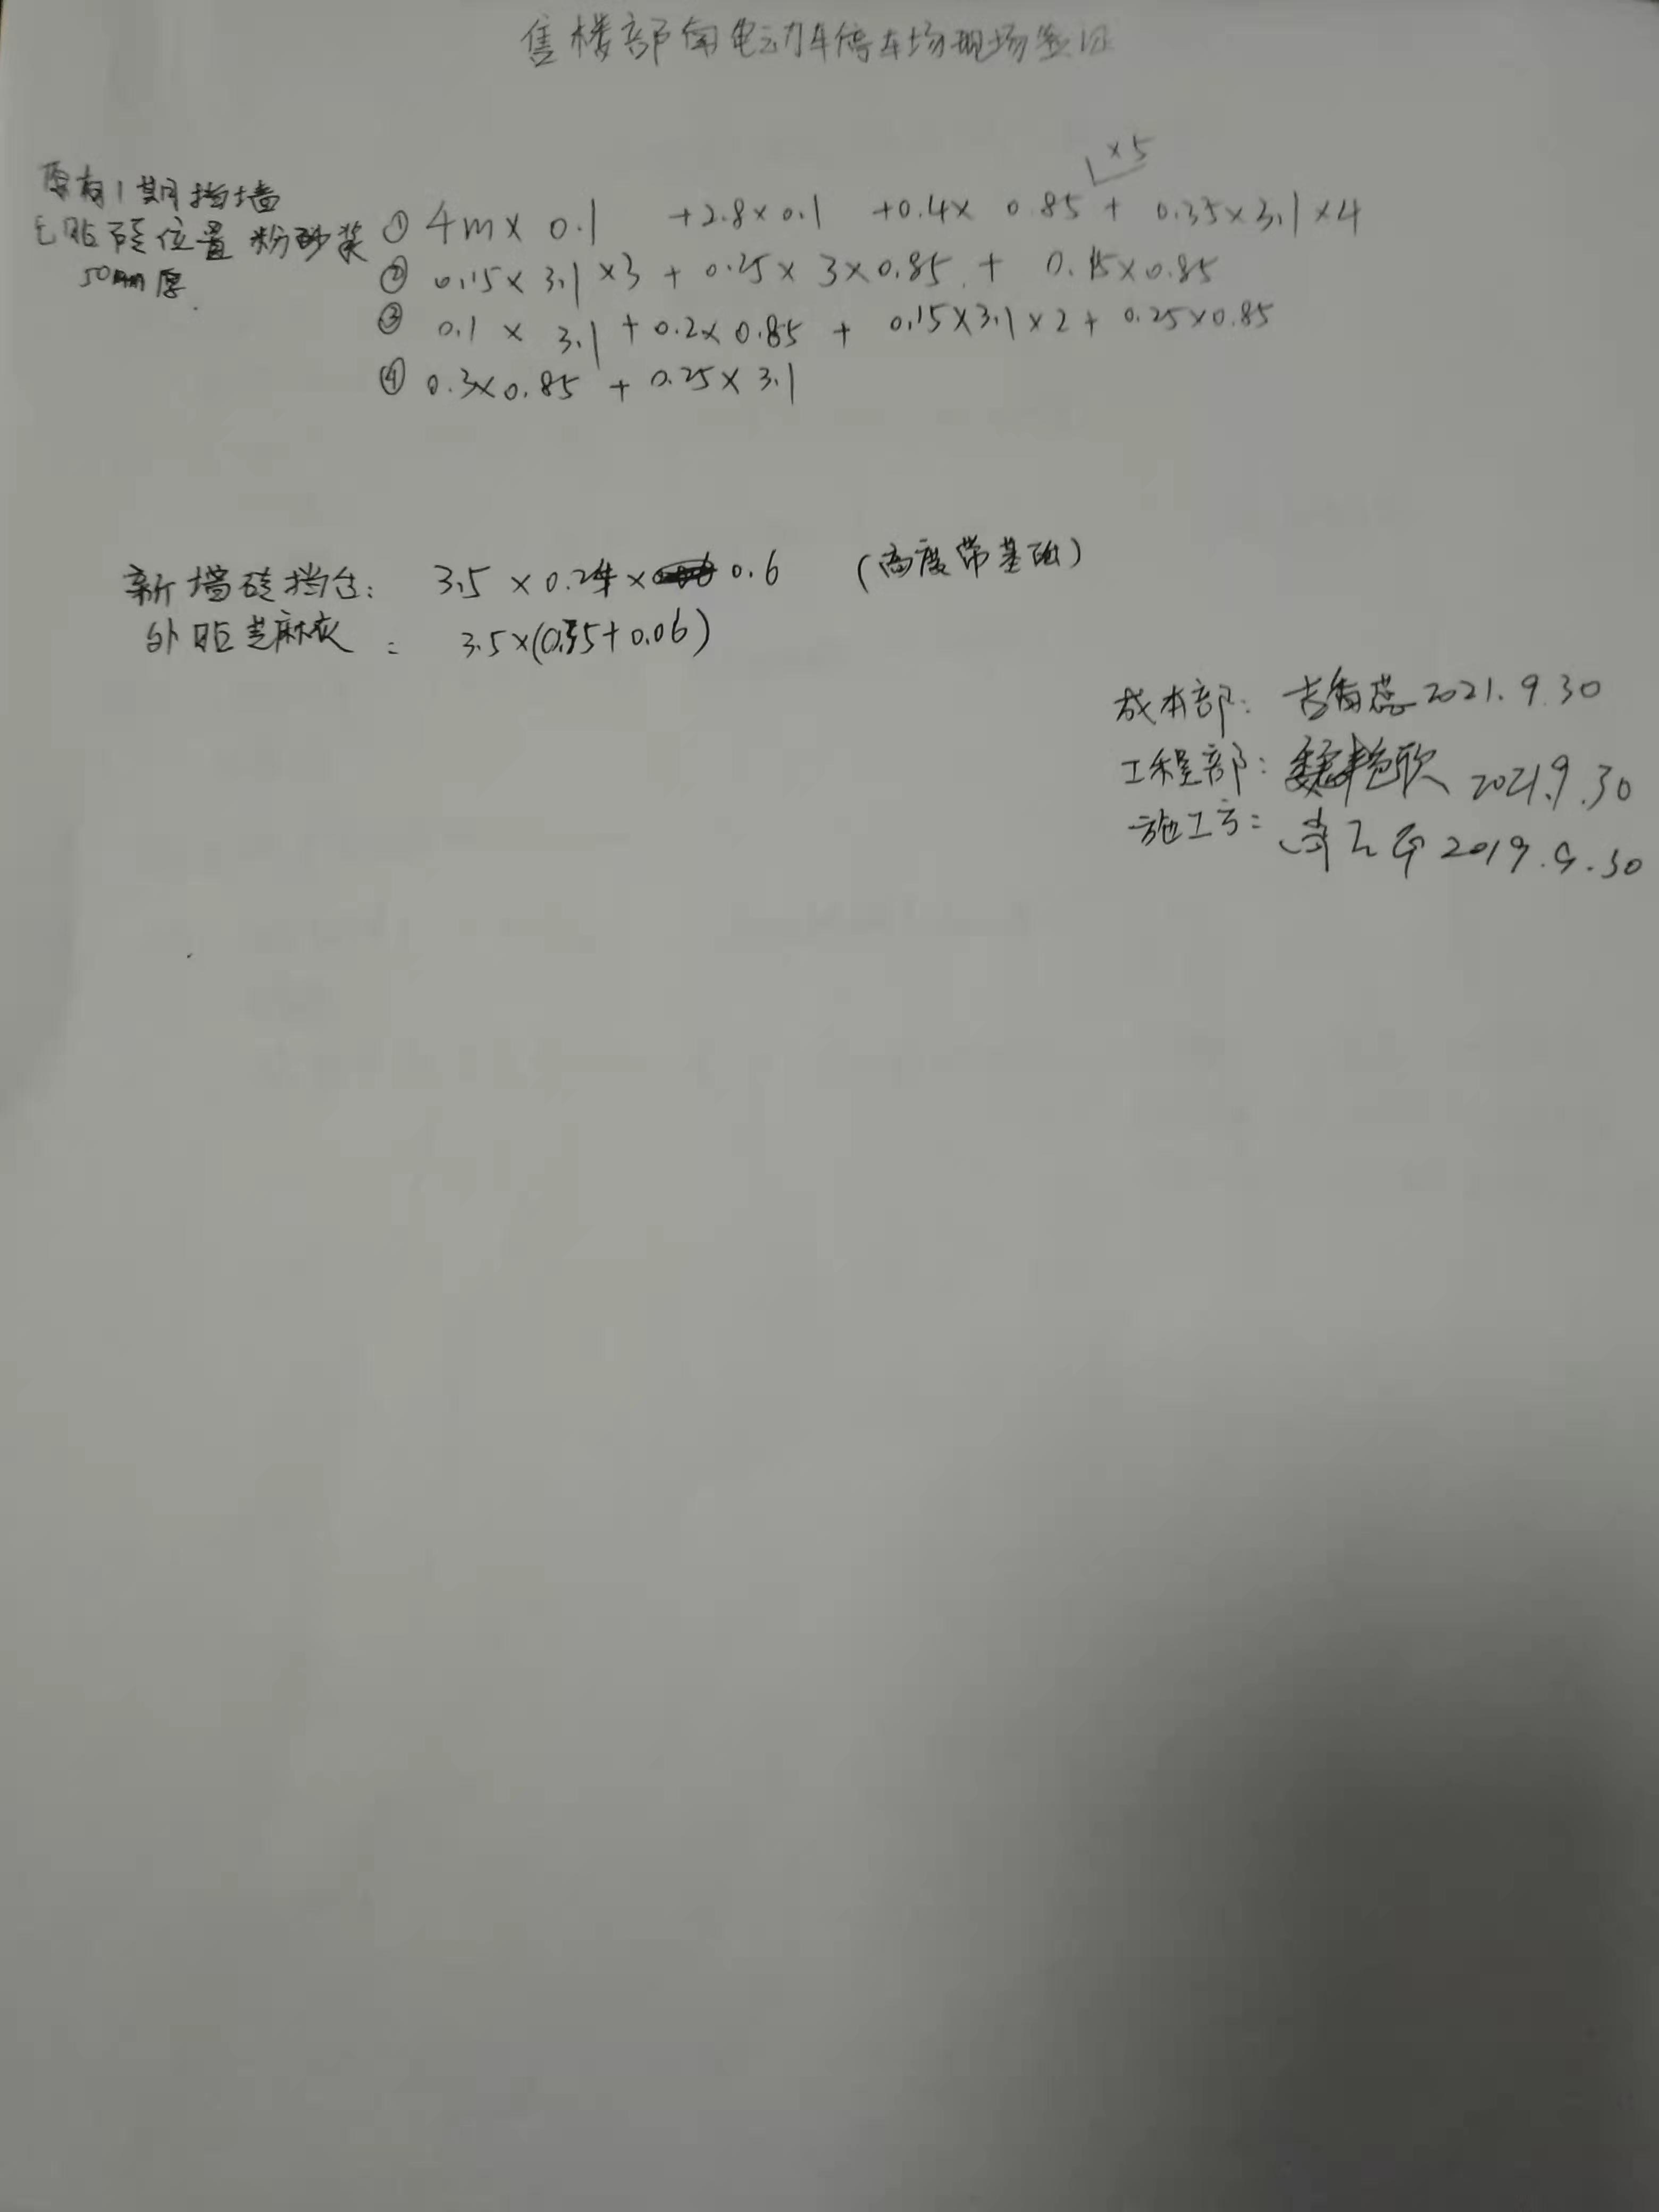 售楼部南电动车停车场现场签证
×5
原有1期挡墙
已贴砖位置粉砂浆
50mm厚.
① 4m×0.1 +2.8×0.1 +0.4×0.85+0.35×3.1×4
② 0.15×3.1×3+0.25×3×0.85+0.15×0.85
③ 0.1×3.1+0.2×0.85+0.15×3.1×2+0.25×0.85
④ 0.3×0.85+0.25×3.1
新增砖挡台: 3.5×0.24×0.6 (高度带基础)
外贴芝麻灰: 3.5×(0.35+0.06)
成本部: 2021.9.30
工程部: 魏艳欣 2021.9.30
施工方: 2019.9.30